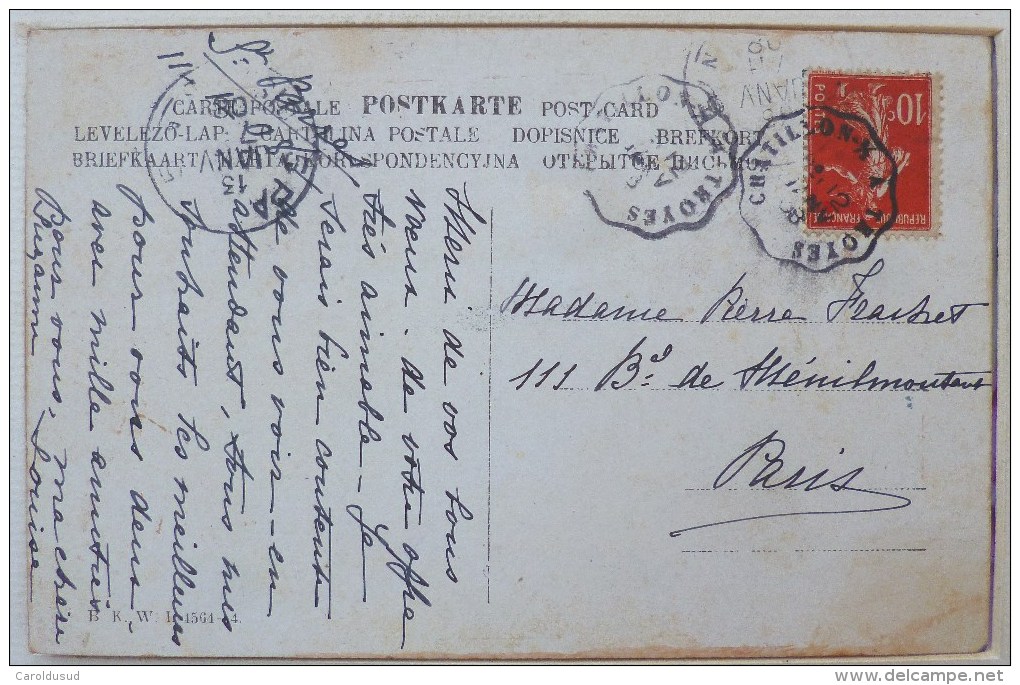 CARTE POSTALE POSTKARTE POST-CARD
LEVELEZŐ-LAP CARTOLINA POSTALE DOPISNICE BREFKORT
BRIEFKAART KARTA KORESPONDENCYJNA ОТКРЫТОЕ ПИСЬМО
Merci de vos bons
vœux. de votre offre
très aimable - Je
serais bien contente
de vous voir - en
attendant, tous mes
souhaits les meilleurs
pour vous deux,
avec mille amitiés
pour vous, ma chère
Suzanne Louise
Madame Pierre Frachet
111 Bd. de Ménilmontant
Paris
10c
POSTES
REPUBLIQUE FRANÇAISE
CHATILLON A TROYES
A TROYES
13
JANV
B. K. W. I. 1564-4.
Caroldusud